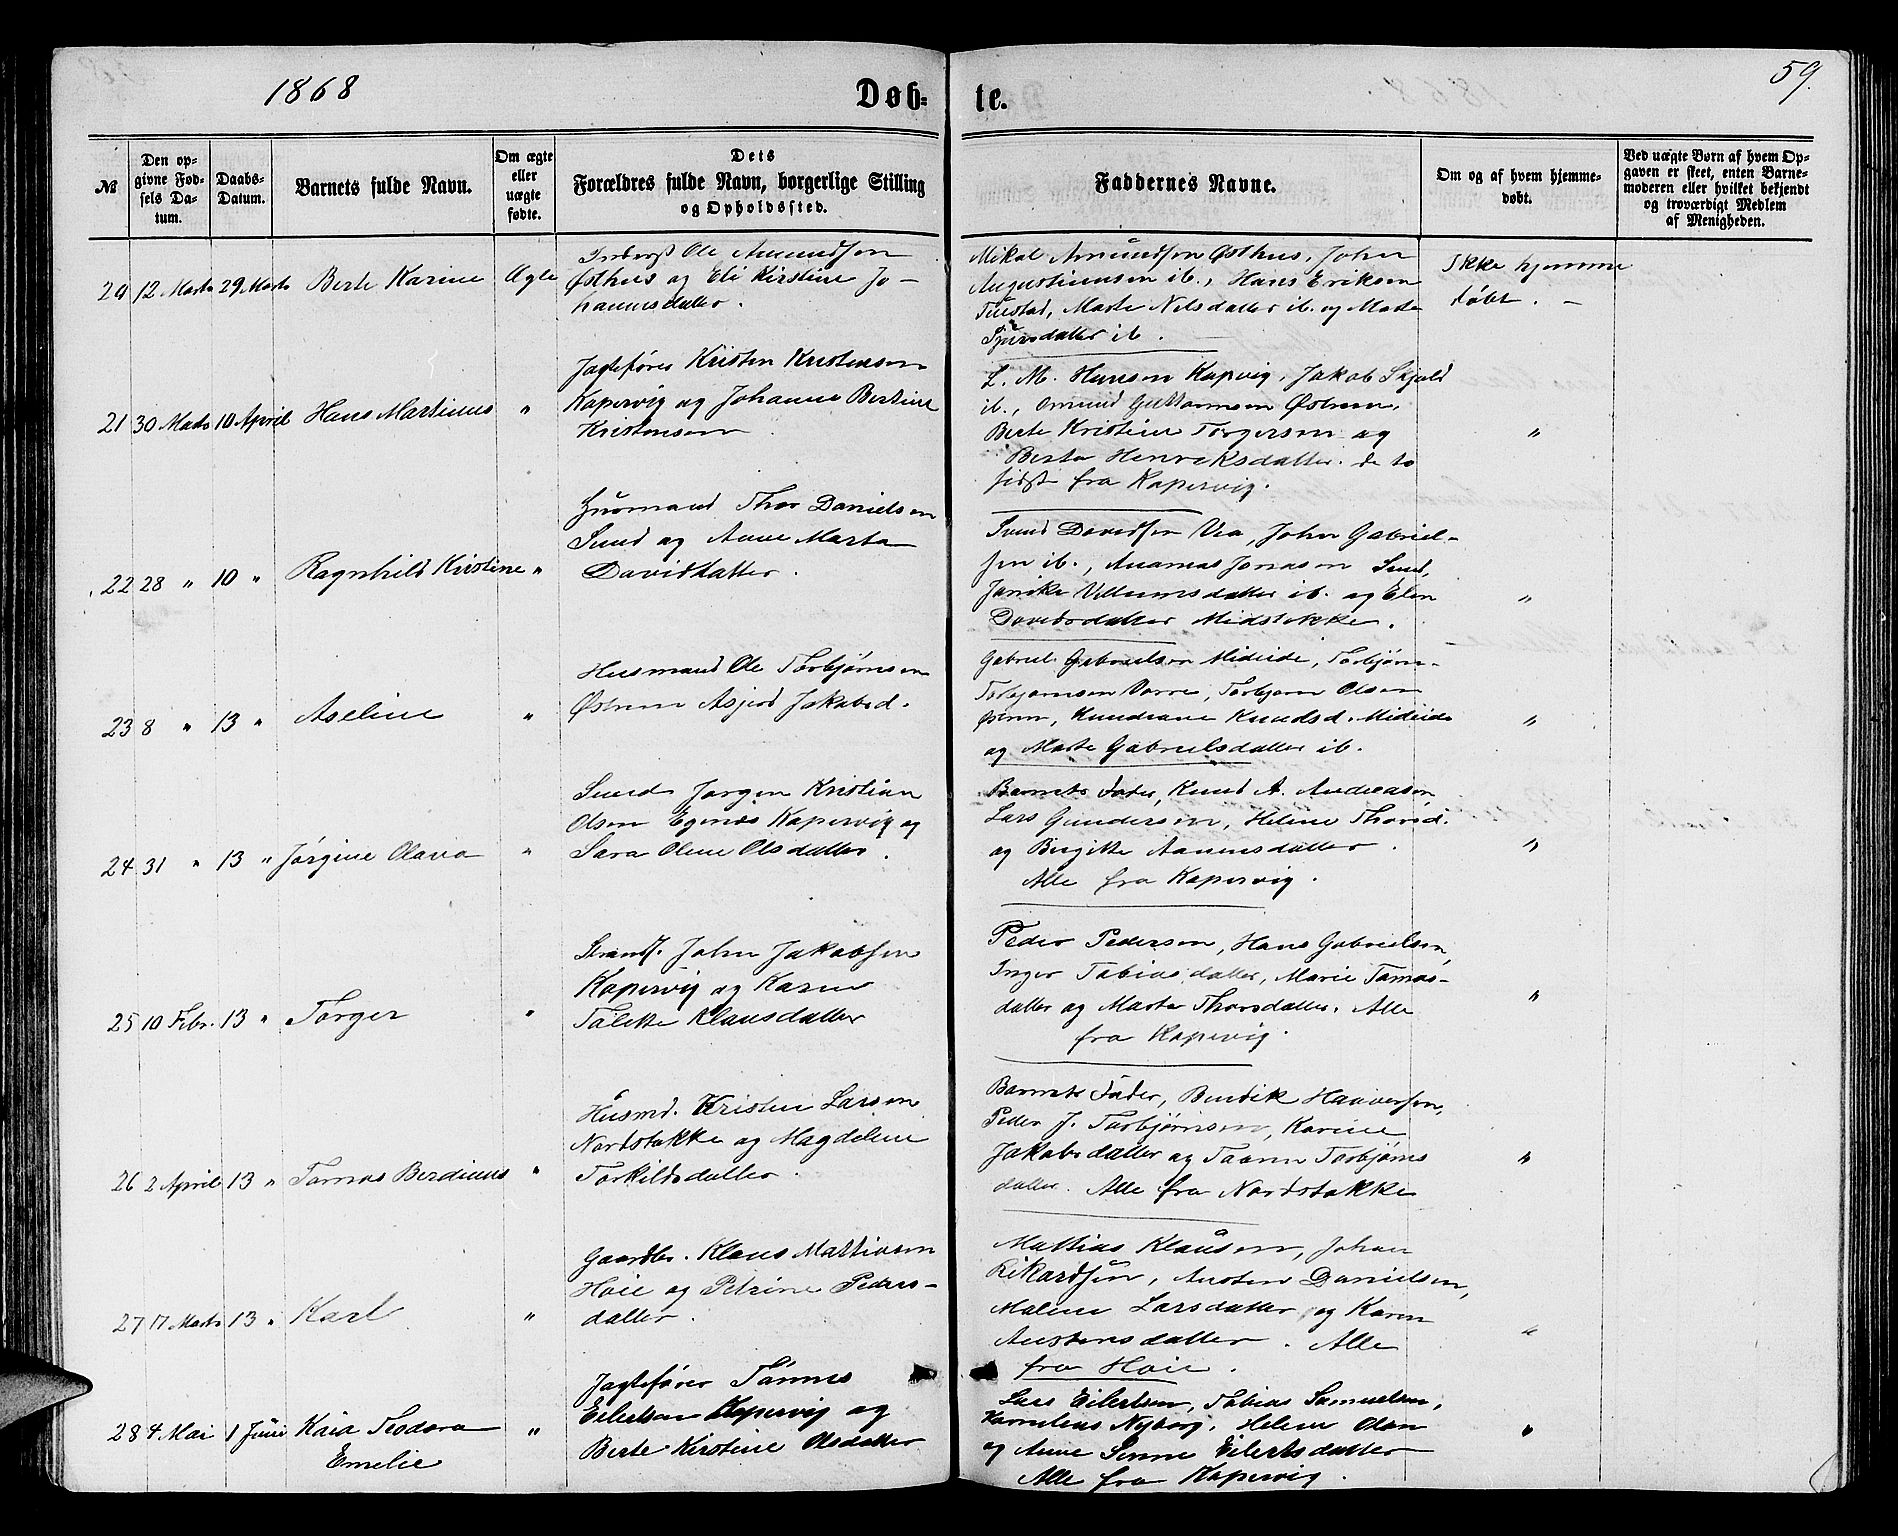 1868
Døb=
te.
59.
№
Den op=
givne Fød=
sels Da=
tum.
Daabs=
Datum.
Barnets fulde Navn.
Om ægte
eller
uægte
fødte.
Dets
Forældres fulde Navn, borgerlige Stilling
og Opholdssted.
Faddernes Navne.
Om og af hvem hjemme=
døbt.
Ved uægte Børn af hvem Op=
gaven er skeet, enten Barne=
moderen eller hvilket bekjendt
og troværdigt Medlem
af Menigheden.
20 12 Marts 29 Marts Berte Karine Ægte
Inderst Ole Amundsen
Østhus og Eli Kirstine Jo-
hannesdatter.
Mikal Amundsen Østhus, John
Augustinusen ib., Hans Eriksen
Marte Nilsdatter ib. og Marte
Sjursdatter ib.
Ikke hjemme
døbt. —
21 30 Marts 10 April Hans Martinus "
Jagtefører Kristen Kristensen
Kopervig og Johanne Bertine
Kristensen
L. M. Hansen Kopvig, Jakob Skjold
ib., Omund Guttormsen Østrem,
Berte Kristine Torgersen og
Berta Henriksdatter. de to
sidst fra Kopervig.
"
22 28 " 10 " Ragnhild Kirstine "
Husmand Thor Danielsen
Sund og Anne Marta
Davidsdatter.
Svend Davidsen Vea, John Gabriel-
sen ib., Jonasen Sund,
Janike Villumsdatter ib. og Elen
Davidsdatter Midstokke.
"
23 8 " 13 " Aseline "
Husmand Ole Torbjørnsen
Østrem Asjerd Jakobsd.
Gabriel Gabrielsen Mideide, Torbjørn
Torbjørnsen Vorre, Torbjørn Olsen
Østrem, Knudsd. Mideide
og Marte Gabrielsdatter ib.
"
24 31 " 13 " Jørgine Olava "
Smed Jørgen Kristian
Olsen Egenæs Kopervig og
Sara Oline Olsdatter.
Barnets Fader, Knud A. Andreasen
Lars Gundersen, Helene Thorsd.
og Birgitte Aanensdatter.
Alle fra Kopervig.
"
25 10 Febr. 13 " Torger "
Strands. John Jakobsen
Kopervig og Karen
Tolette Klausdatter
Peder Pedersen, Hans Gabrielsen,
Inger Tobiasdatter, Marie Tomas-
datter og Marta Thorsdatter. Alle
fra Kopervig.
"
26 2 April 13 " Tomas Berdinus "
Husmd. Kristen Larsen
Nordstokke og Magdelene
Torkildsdatter.
Barnets Fader, Bendik Haaversen,
Peder J. Torbjørnsen, Karine
Jakobsdatter og Taarn Torbjørns
datter. Alle fra Nordstokke
"
27 17 Marts 13 " Karl "
Gaardbr. Klaus Mattiasen
Hoie og Petrine Peders-
datter.
Mattias Klausen, Johan
Rikardsen, Austen Danielsen,
Malene Larsdatter og Karen
Austensdatter. Alle
fra Hoie.
"
28 4 Mai 1 Juni Kaia Teodora "
Emelie
Jagtefører Tønnes
Eilertsen Kopervig og
Berte Kirstine Olsdatter
Lars Eilertsen, Tobias Samuelsen,
Kornelius Nyborg, Helene Olsen
og Anne Eilertsdatter
Alle fra Kopervig.
"